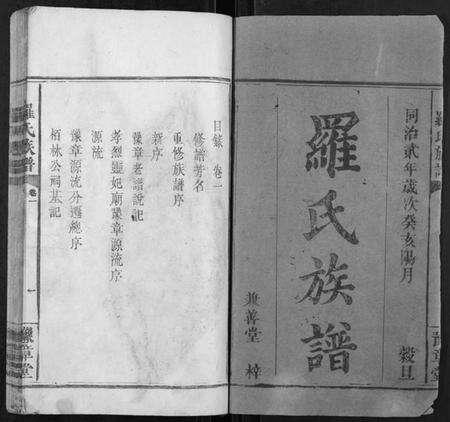 同治貳年歲次癸亥陽月
穀旦
羅氏族譜
兼善堂 梓
目錄 卷一
修譜芳名
重修族譜序
新序
豫章老譜說記
孝烈靈妃廟豫章源流序
源流
豫章源流分遷總序
栢林公祠墓記
羅氏族譜
卷一
一
豫章堂